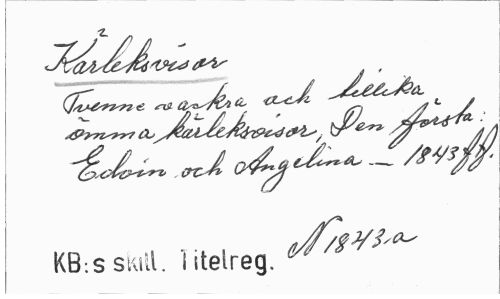 Kärleksvisor
Tvenne vackra och tillika
ömma kärleksvisor, Den första:
Edvin och Angelina — 1843 ff.
N 1843.a
KB:s skill. Titelreg.